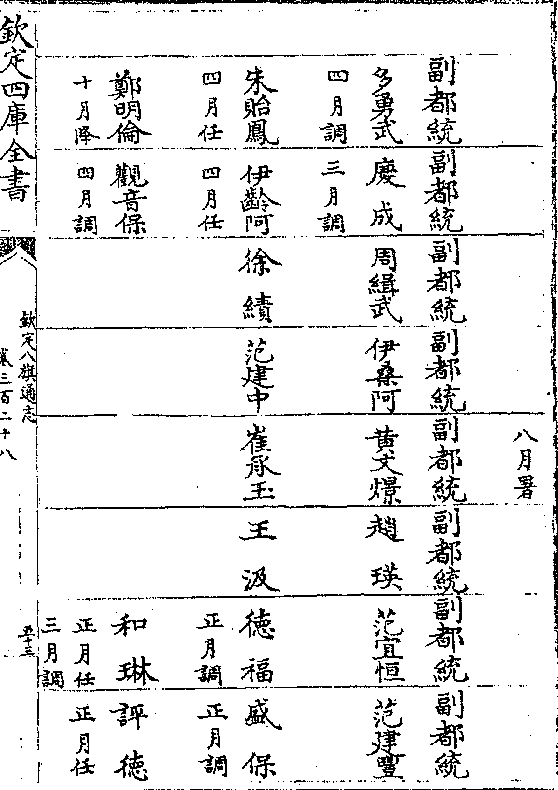 八月署
副都統 副都統 副都統 副都統 副都統 副都統 副都統 副都統
多勇武 慶成 周緝武 伊桑阿 黃文燝 趙瑛 范宜恒 范建豐
四月調 三月調
朱貽鳳 伊齡阿 徐績 范建中 崔承玉 王汲 德福 盛保
四月任 四月任 正月調 正月調
鄭明倫 觀音保 和琳 評德
十月降 四月調 正月任 正月任
三月調
欽定四庫全書
欽定八旗通志
卷三百二十八
五十三